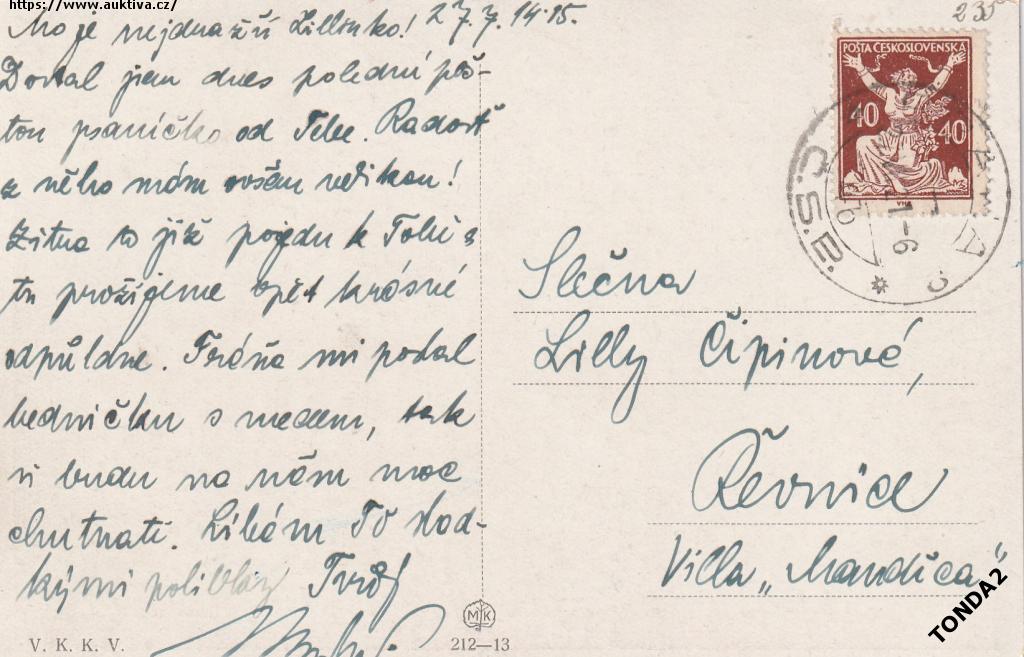 https://www.auktiva.cz/
Moje nejdražší Lillinko! 27.7. 14·15.
Dostal jsem dnes polední poš-
tou psaníčko od Tebe. Radost
z něho mám ovšem velikou!
Zítra to již pojedu k Tobě a
tu prožijeme opět krásné
odpůldne. Fráňa mi podal
bedničku s medem, tak
si budu na něm moc
chutnati. Líbám Tě slad-
kými polibky Tvůj
V. K. K. V.
MK
212—13
235
POŠTA ČESKOSLOVENSKÁ
40
40
Č.S.R.
Slečna
Lilly Čipinové,
Řevnice
Villa „Mandica"
TONDA2